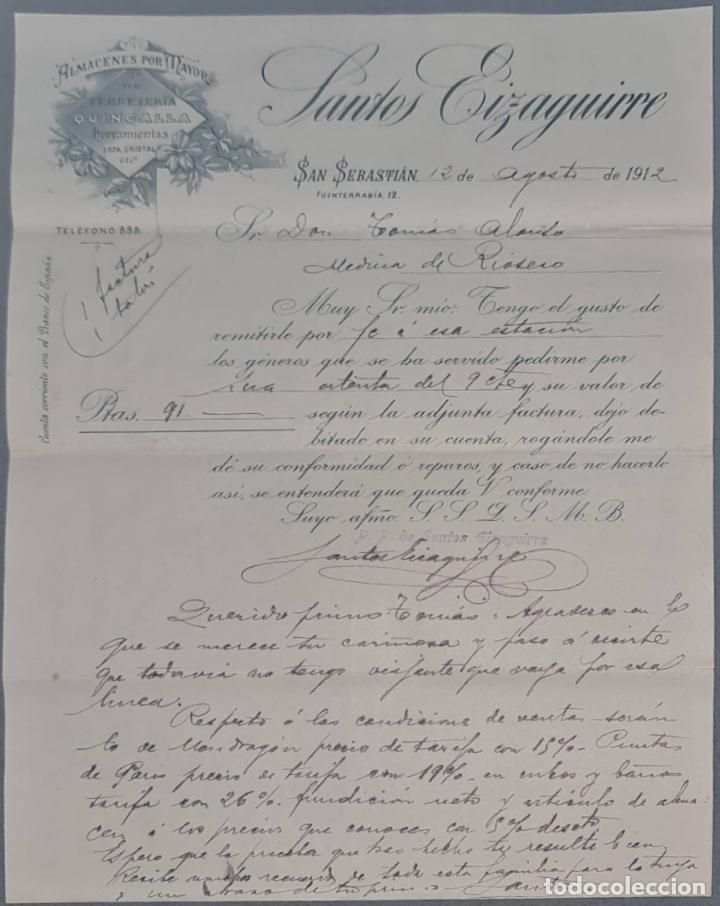 ALMACENES POR MAYOR
DE
FERRETERÍA
QUINCALLA
herramientas
LOZA, CRISTAL
etc.
Santos Eizaguirre
SAN SEBASTIÁN, 12 de Agosto de 1912
FUENTERRABÍA, 12.
TELÉFONO 888.
1 factura
1 talón
Cuenta corriente con el Banco de España
Sr. Don Tomás Alonso
Medina de Rioseco
Muy Sr. mío: Tengo el gusto de
remitirle por fc á esa estación
los géneros que se ha servido pedirme por
sua atenta del 9 cte y su valor de
Ptas. 91.—
según la adjunta factura, dejo de-
bitado en su cuenta, rogándole me
dé su conformidad ó reparos, y caso de no hacerlo
así, se entenderá que queda V conforme.
Suyo afmo. S. S. Q. S. M. B.
P. P. de Santos Eizaguirre
Santos Eizaguirre
Querido primo Tomás: Agradezco en lo
que se merece tu cariñosa y paso á decirte
que todavia no tengo viajante que vaya por esa
linea.
Respecto á las condiciones de ventas serán
lo de Mondragón precio de tarifa con 15% Puntas
de Paris precio de tarifa con 19% en cubos y baños
tarifa con 26% fundición neto y artículo de alma-
cen á los precios que conoces con 5% desto
Espero que la prueba que has hecho te resulte bien
Recibe recuerdos de toda esta familia para la tuya
y un abrazo de tu primo Santos
todocoleccion
todocoleccion.net